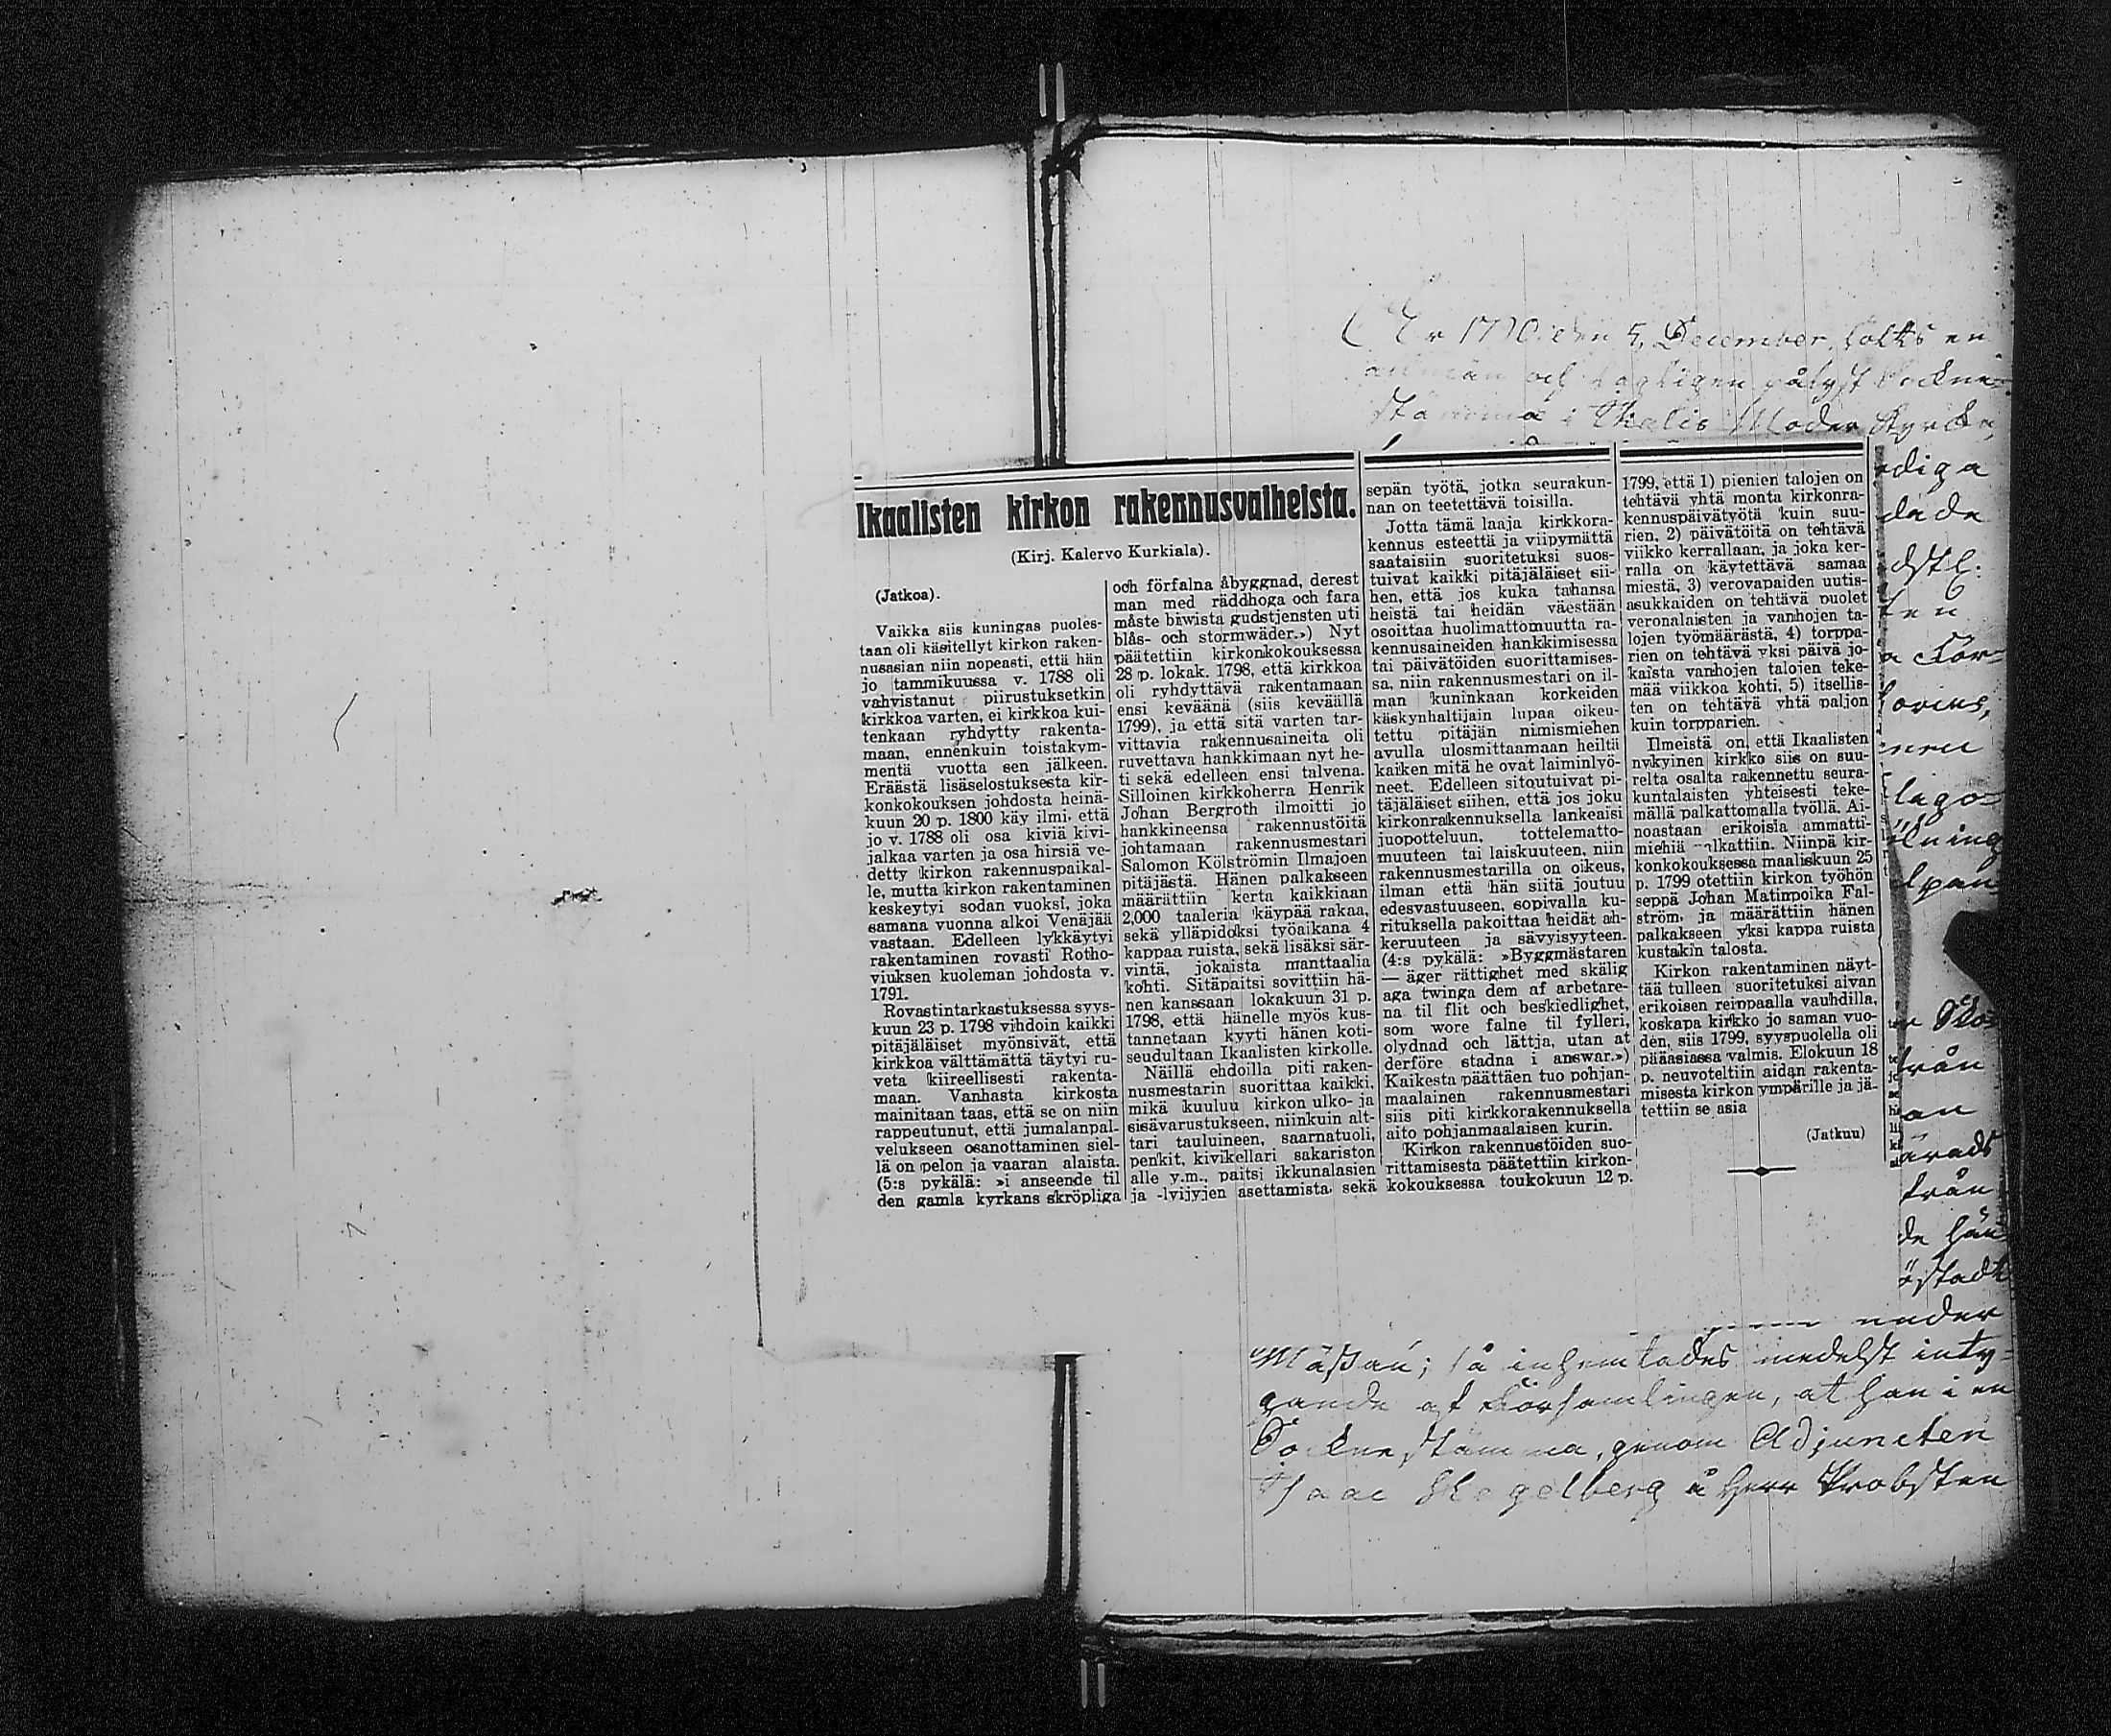 1770 den 5. December, hölts en
pålyst Sockne-
stämma i Ikalis Moder Kyrcka,
Ikaalisten kirkon rakennusvaiheista.
(Kirj. Kalervo Kurkiala).
(Jatkoa).
Vaikka siis kuningas puoles-
taan oli käsitellyt kirkon raken-
nusasian niin nopeasti, että hän
jo tammikuussa v. 1788 oli
vahvistanut piirustuksetkin
kirkkoa varten, ei kirkkoa kui-
tenkaan ryhdytty rakenta-
maan, ennenkuin toistakym-
mentä vuotta sen jälkeen.
Eräästä lisäselostuksesta kir-
konkokouksen johdosta heinä-
kuun 20 p. 1800 käy ilmi, että
jo v. 1788 oli osa kiviä kivi-
jalkaa varten ja osa hirsiä ve-
detty kirkon rakennuspaikal-
le, mutta kirkon rakentaminen
keskeytyi sodan vuoksi, joka
samana vuonna alkoi Venäjää
vastaan. Edelleen lykkäytyi
rakentaminen rovasti Rotho-
viuksen kuoleman johdosta v.
1791.
Rovastintarkastuksessa syys-
kuun 23 p. 1798 vihdoin kaikki
pitäjäläiset myönsivät, että
kirkkoa välttämättä täytyi ru-
veta kiireellisesti rakenta-
maan. Vanhasta kirkosta
mainitaan taas, että se on niin
rappeutunut, että jumalanpal-
velukseen osanottaminen siel-
lä on pelon ja vaaran alaista.
(5:s pykälä: »i anseende til
den gamla kyrkans skröpliga
och förfalna åbyggnad, derest
man med räddhoga och fara
måste biwista gudstjensten uti
blås- och stormwäder.») Nyt
päätettiin kirkonkokouksessa
28 p. lokak. 1798, että kirkkoa
oli ryhdyttävä rakentamaan
ensi keväänä (siis keväällä
1799), ja että sitä varten tar-
vittavia rakennusaineita oli
ruvettava hankkimaan nyt he-
ti sekä edelleen ensi talvena.
Silloinen kirkkoherra Henrik
Johan Bergroth ilmoitti jo
hankkineensa rakennustöitä
johtamaan rakennusmestari
Salomon Kölströmin Ilmajoen
pitäjästä. Hänen palkakseen
määrättiin kerta kaikkiaan
2,000 taaleria käypää rakaa,
sekä ylläpidoksi työaikana 4
kappaa ruista, sekä lisäksi sär-
vintä, jokaista manttaalia
kohti. Sitäpaitsi sovittiin hä-
nen kanssaan lokakuun 31 p.
1798, että hänelle myös kus-
tannetaan kyyti hänen koti-
seudultaan Ikaalisten kirkolle.
Näillä ehdoilla piti raken-
nusmestarin suorittaa kaikki,
mikä kuuluu kirkon ulko- ja
sisävarustukseen, niinkuin alt-
tari tauluineen, saarnatuoli,
penkit, kivikellari sakariston
alle y.m., paitsi ikkunalasien
ja -lyijyjen asettamista sekä
sepän työtä, jotka seurakun-
nan on teetettävä toisilla.
Jotta tämä laaja kirkkora-
kennus esteettä ja viipymättä
saataisiin suoritetuksi suos-
tuivat kaikki pitäjäläiset sii-
hen, että jos kuka tahansa
heistä tai heidän väestään
osoittaa huolimattomuutta ra-
kennusaineiden hankkimisessa
tai päivätöiden suorittamises-
sa, niin rakennusmestari on il-
man kuninkaan korkeiden
käskynhaltijain lupaa oikeu-
tettu pitäjän nimismiehen
avulla ulosmittaamaan heiltä
kaiken mitä he ovat laiminlyö-
neet. Edelleen sitoutuivat pi-
täjäläiset siihen, että jos joku
kirkonrakennuksella lankeaisi
juopotteluun, tottelematto-
muuteen tai laiskuuteen, niin
rakennusmestarilla on oikeus,
ilman että hän siitä joutuu
edesvastuuseen, sopivalla ku-
rituksella pakoittaa heidät ah-
keruuteen ja sävyisyyteen.
(4:s pykälä: »Byggmästaren
— äger rättighet med skälig
aga twinga dem af arbetare-
na til flit och beskiedlighet,
som wore falne til fylleri,
olydnad och lättja, utan at
derföre stadna i answar.»)
Kaikesta päättäen tuo pohjan-
maalainen rakennusmestari
siis piti kirkkorakennuksella
aito pohjanmaalaisen kurin.
Kirkon rakennustöiden suo-
rittamisesta päätettiin kirkon-
kokouksessa toukokuun 12 p.
1799, että 1) pienien talojen on
tehtävä yhtä monta kirkonra-
kennuspäivätyötä kuin suu-
rien, 2) päivätöitä on tehtävä
viikko kerrallaan, ja joka ker-
ralla on käytettävä samaa
miestä, 3) verovapaiden uutis-
asukkaiden on tehtävä puolet
veronalaisten ja vanhojen ta-
lojen työmäärästä, 4) torppa-
rien on tehtävä yksi päivä jo-
kaista vanhojen talojen teke-
mää viikkoa kohti, 5) itsellis-
ten on tehtävä yhtä paljon
kuin torpparien.
Ilmeistä on, että Ikaalisten
nykyinen kirkko siis on suu-
relta osalta rakennettu seura-
kuntalaisten yhteisesti teke-
mällä palkattomalla työllä. Ai-
noastaan erikoisia ammatti-
miehiä alkattiin. Niinpä kir-
konkokouksessa maaliskuun 25
p. 1799 otettiin kirkon työhön
seppä Johan Matinpoika Fal-
ström, ja määrättiin hänen
palkakseen yksi kappa ruista
kustakin talosta.
Kirkon rakentaminen näyt-
tää tulleen suoritetuksi aivan
erikoisen reippaalla vauhdilla,
koskapa kirkko jo saman vuo-
den, siis 1799, syyspuolella oli
pääasiassa valmis. Elokuun 18
p. neuvoteltiin aidan rakenta-
misesta kirkon ympärille ja jä-
tettiin se asia
(Jatkuu)
under
Mässan; så inhemtades medelst inty-
gande af Församlingen, at han i en
Sockne stämma, genom Adjuncten
Isaac Skogelberg å Herr Probsten